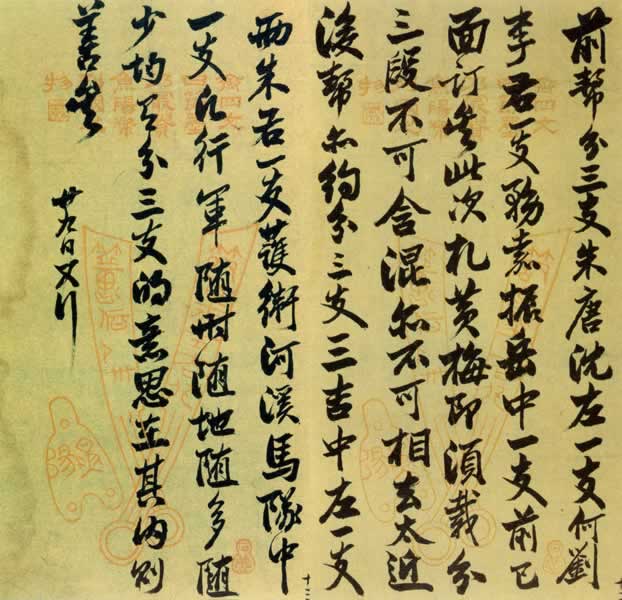 前幫分三支朱唐沈左一支何劉
李右一支務嘉振岳中一支前已
面訂矣此次札黄梅即須截分
三段不可含混亦不可相去太近
後幫亦約分三支三吉中左一支
西朱右一支護衛河溪馬隊中
一支凡行軍随時随地随多随
少均有分三支的意思在其内則
善矣
廿九日又行
十二